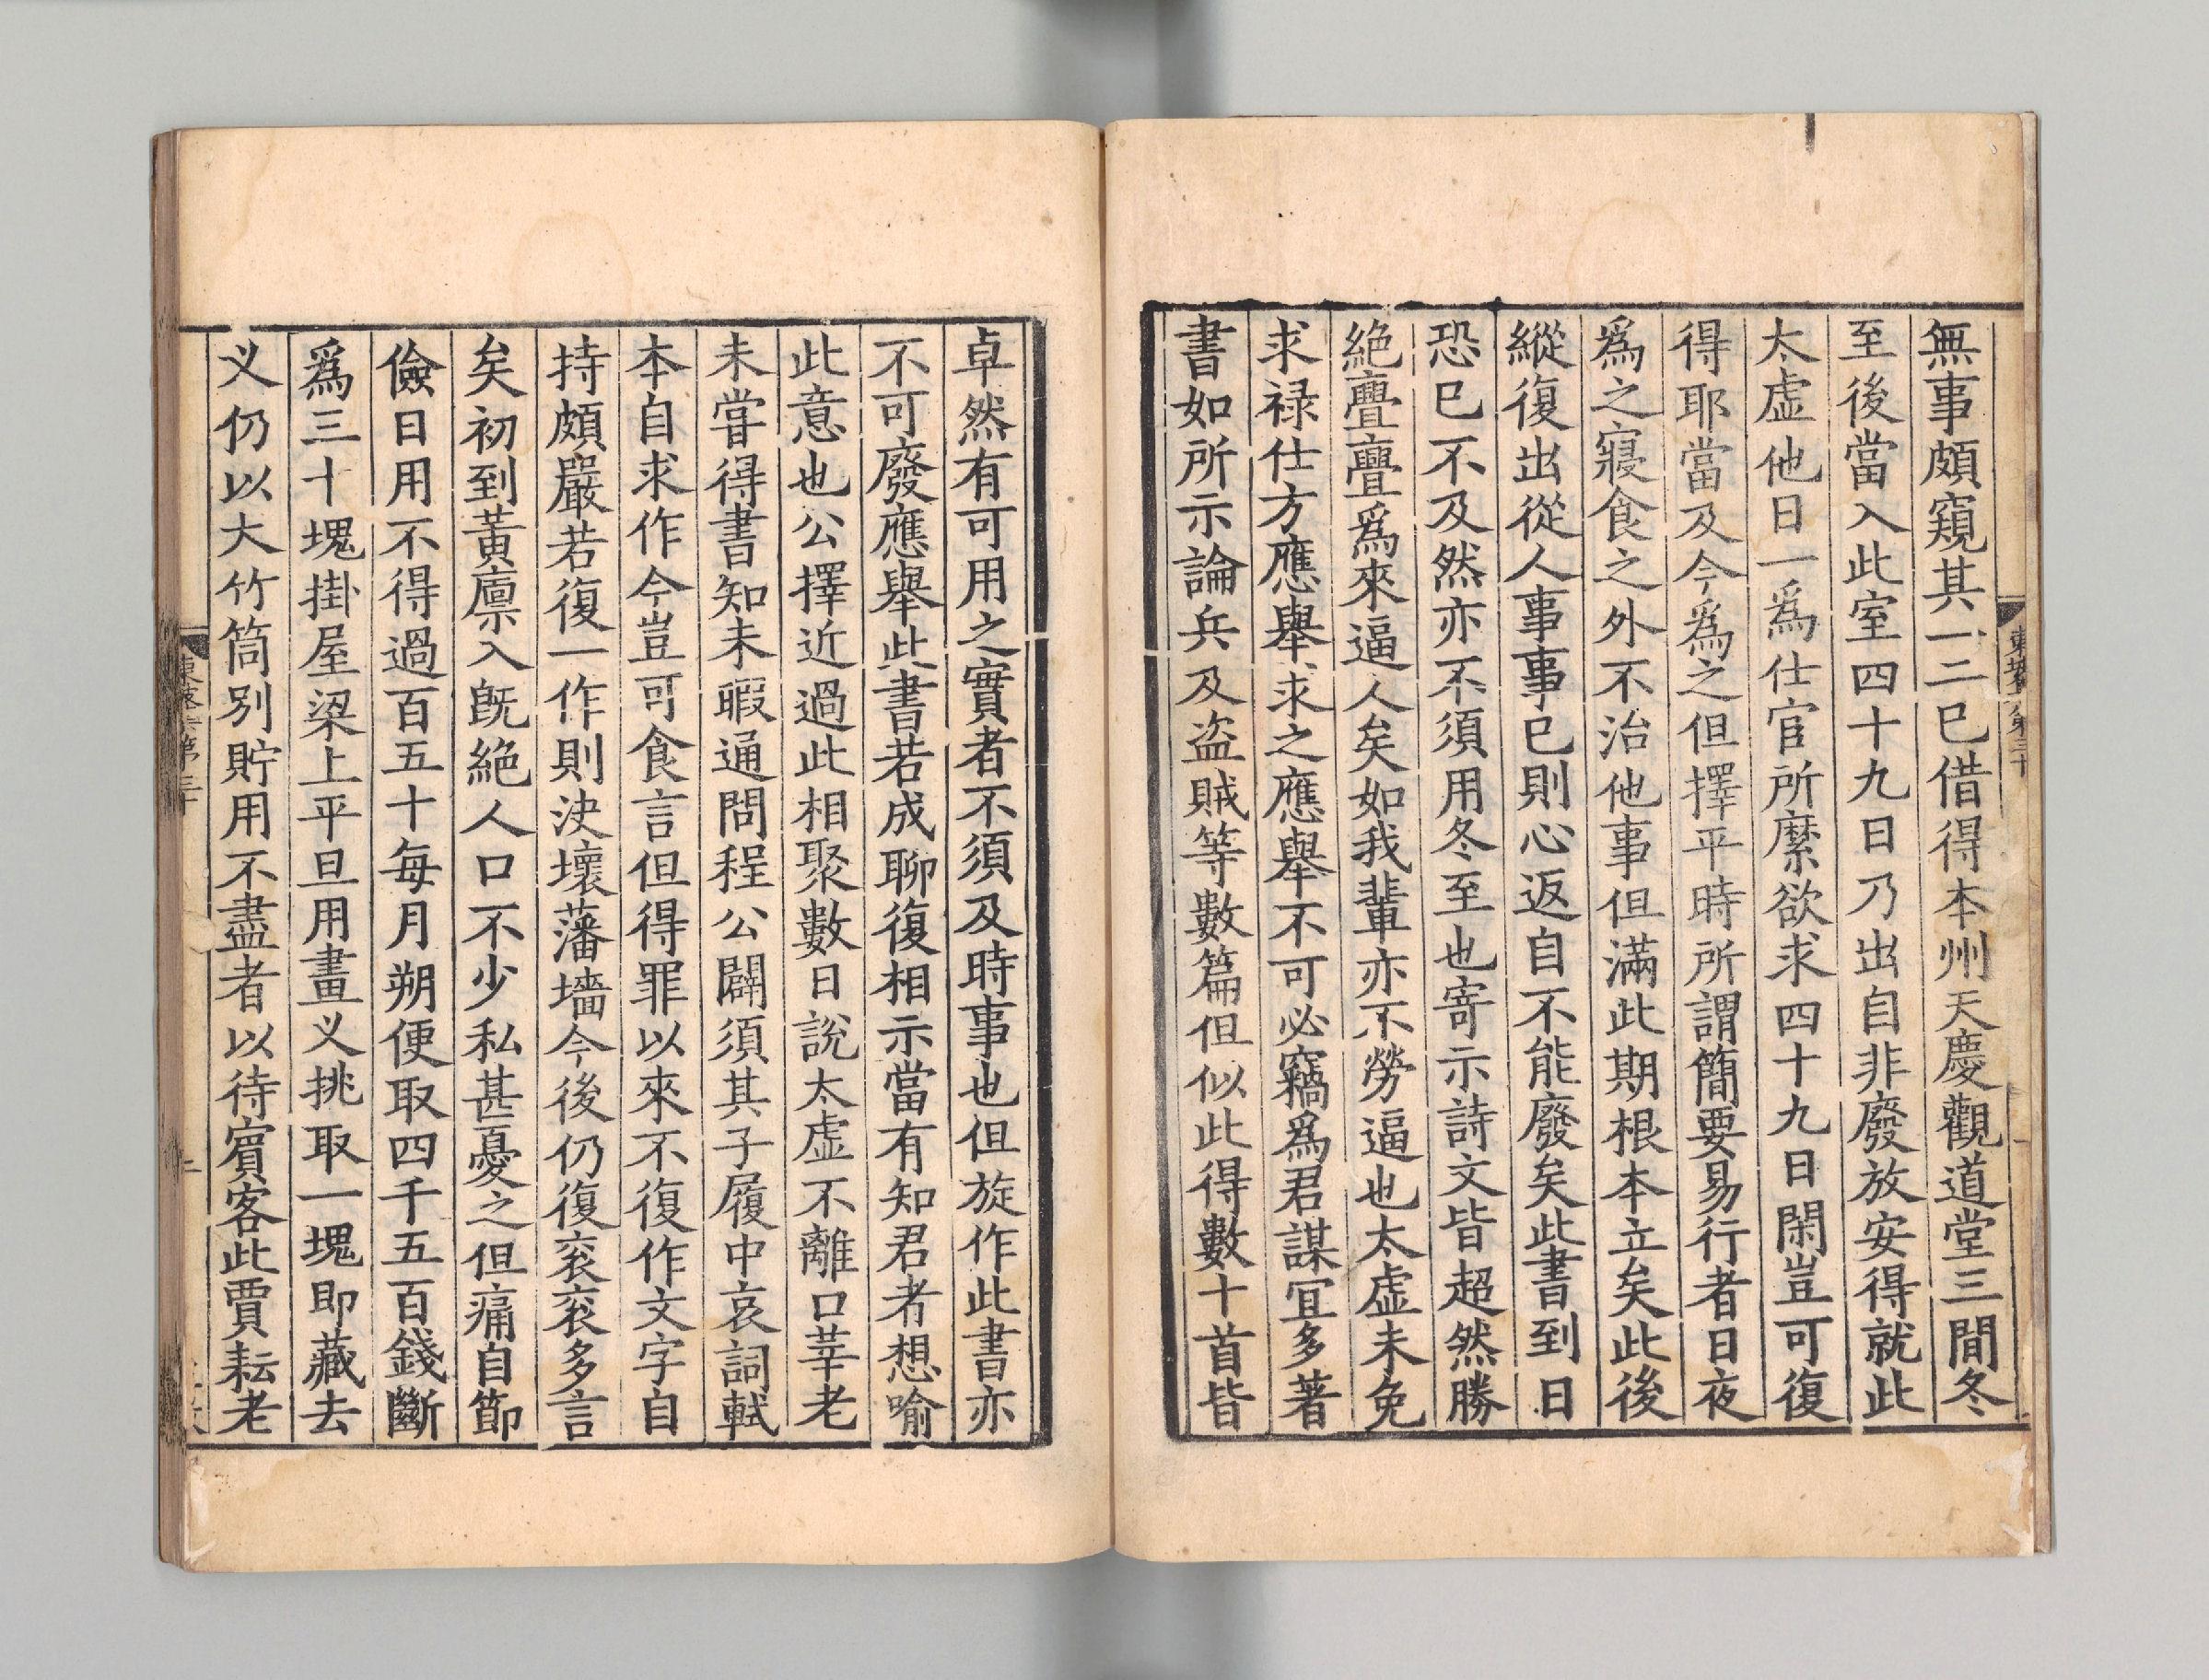 無事頗窺其一二已借得本州天慶觀道堂三間冬
至後當入此室四十九日乃出自非廢放安得就此
太虛他日一爲仕宦所縻欲求四十九日閑豈可復
得耶當及今爲之但擇平時所謂簡要易行者日夜
爲之寢食之外不治他事但滿此期根本立矣此後
縱復出從人事事已則心返自不能廢矣此書到日
恐已不及然亦不須用冬至也寄示詩文皆超然勝
絶亹亹爲來逼人矣如我輩亦不勞逼也太虛未免
求祿仕方應舉求之應舉不可必竊爲君謀宜多著
書如所示論兵及盗賊等數篇但似此得數十首皆
卓然有可用之實者不須及時事也但旋作此書亦
不可廢應舉此書若成聊復相示當有知君者想喻
此意也公擇近過此相聚數日說太虛不離口莘老
未甞得書知未暇通問程公闢須其子履中哀詞軾
本自求作今豈可食言但得罪以來不復作文字自
持頗嚴若復一作則決壞藩墻今後仍復衮衮多言
矣初到黃廩入旣絶人口不少私甚憂之但痛自節
儉日用不得過百五十每月朔便取四千五百錢斷
爲三十塊掛屋梁上平旦用畫义挑取一塊即藏去
义仍以大竹筒別貯用不盡者以待賓客此賈耘老